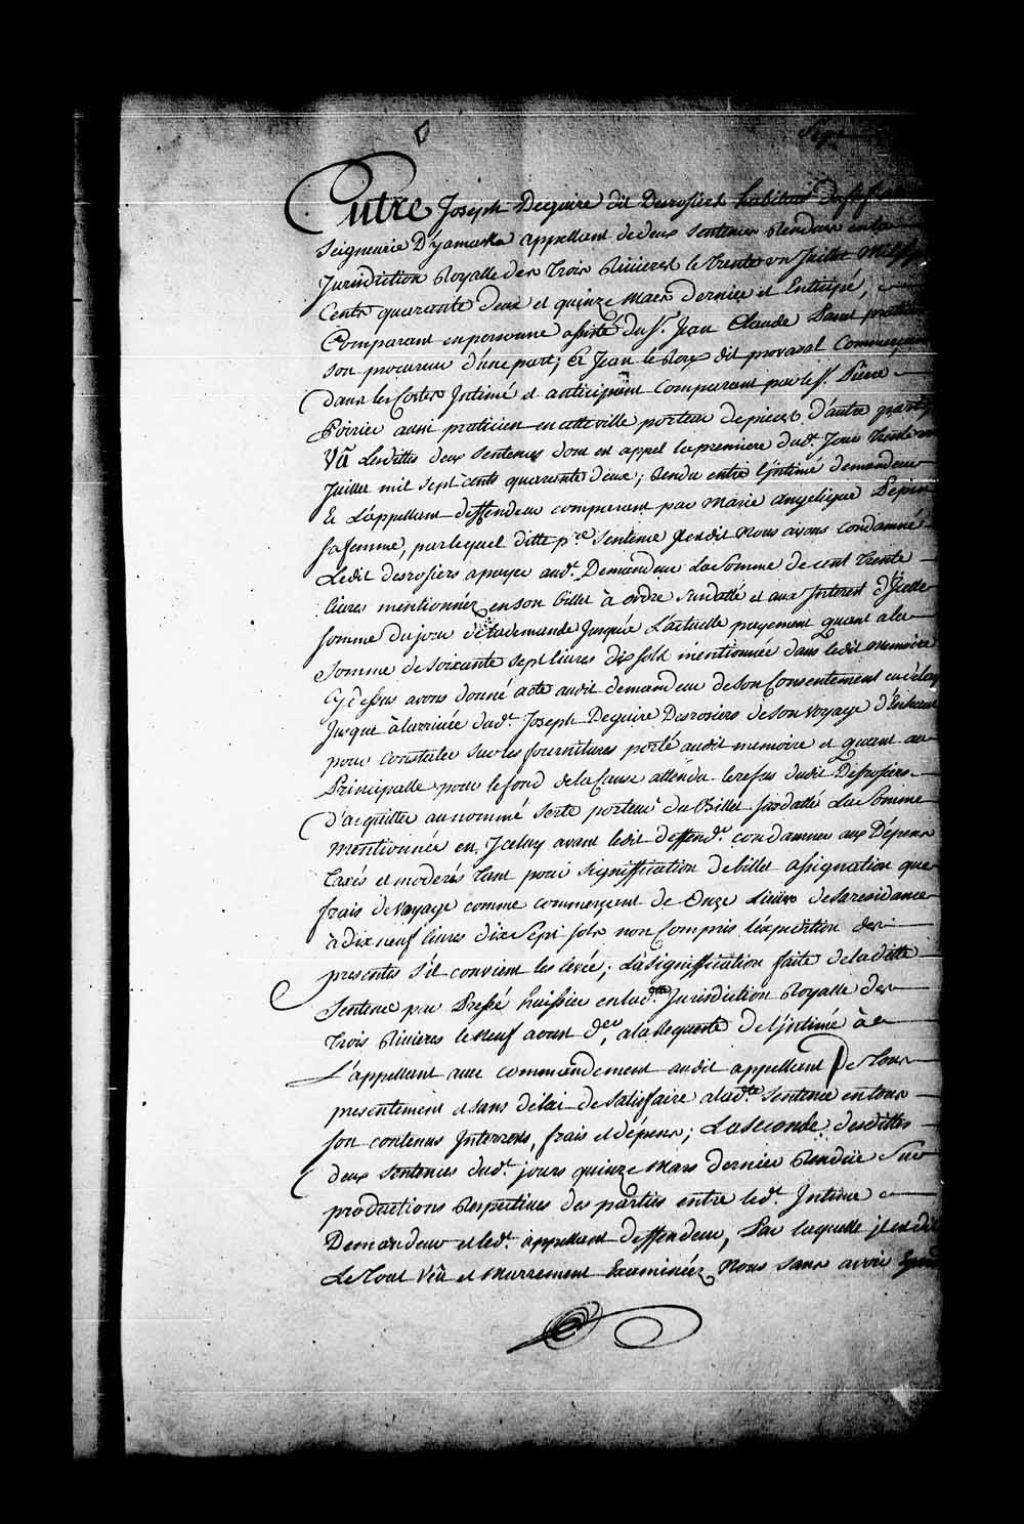 Entre Joseph Deguire dit Desrosiers habitant
Seigneurie D'yamaska appellant de deux sentences Rendues en la
Jurisdiction Royalle des Trois Rivieres le trente un Juillet mil sept
Cents quarante deux et quinze mars dernier et Enticipé,
Comparant en personne assisté du Sr. Jean Claude Panet praticien
son procureur d'une part; Et Jean le Roux dit provaval Commerçant
dans les Costes Intimé et anticipant Comparant par le Sr. Pierre
Poirier aussi praticien en cette ville porteur de pieces d'autre part;
Vû Lesdittes deux Sentences dont est appel la premiere dud. Jour trente un
Juillet mil sept cents quarante deux; rendu entre l'jntimé demandeur
Et L'appellant deffendeur comparant par Marie angelique Pepin
sa femme, par lequel ditte pre. sentence Il est dit Nous avons condamné
Ledit desrosiers a payer aud. Demandeur La Somme de cent trente
livres mentionnéz en son billet à ordre susdatté et aux Interest d'Jcelle
somme du jour de la demande Jusqu'a L'actuelle payement quant a la
Somme de soixante sept livres dix sols mentionnée dans ledit memoire
Cy dessus avons donné acte audit demandeur de son Consentement en delay
Jusque à larrivée dud. Joseph Deguire Desrosiers de son voyage
pour constater sur les fournitures porté audit memoire et quant au
Principalle pour le fond de la Cause attendu le refus dudit Desrosiers
D'acquitter au nommé Serte porteur du Billet susdatté La Somme
mentionnée en Jceluy avons ledit deffendr. condamner aux Dépens
taxés et moderés tant pour signiffication de billet assignation que
frais de voyage comme commerçent de Onze Lieues de sa residance
à dix neuf livres dix sept sols non Compris l'expedition des
presentes s'il convient les levée; La signiffication faite de laditte
Sentence par Pressé huissier en lad. Jurisdiction Royalle des
Trois Rivieres le neuf aoust der, a la Requeste de l'jntimée à
L'appellant avec commandement audit appellant De tous
presentement et sans delai de satisfaire a lad. Sentence en tous
son contenus Interrests, frais et dépens; La seconde desdittes
deux sentences dud. jours quinze mars dernier Rendue Sur
productions Respectives des parties entre led. Intimé
Demandeur et led. appellant deffendeur, Par laquelle jl est dit
Le tout Vû et murrement Examinéz Nous sans avoir Egard